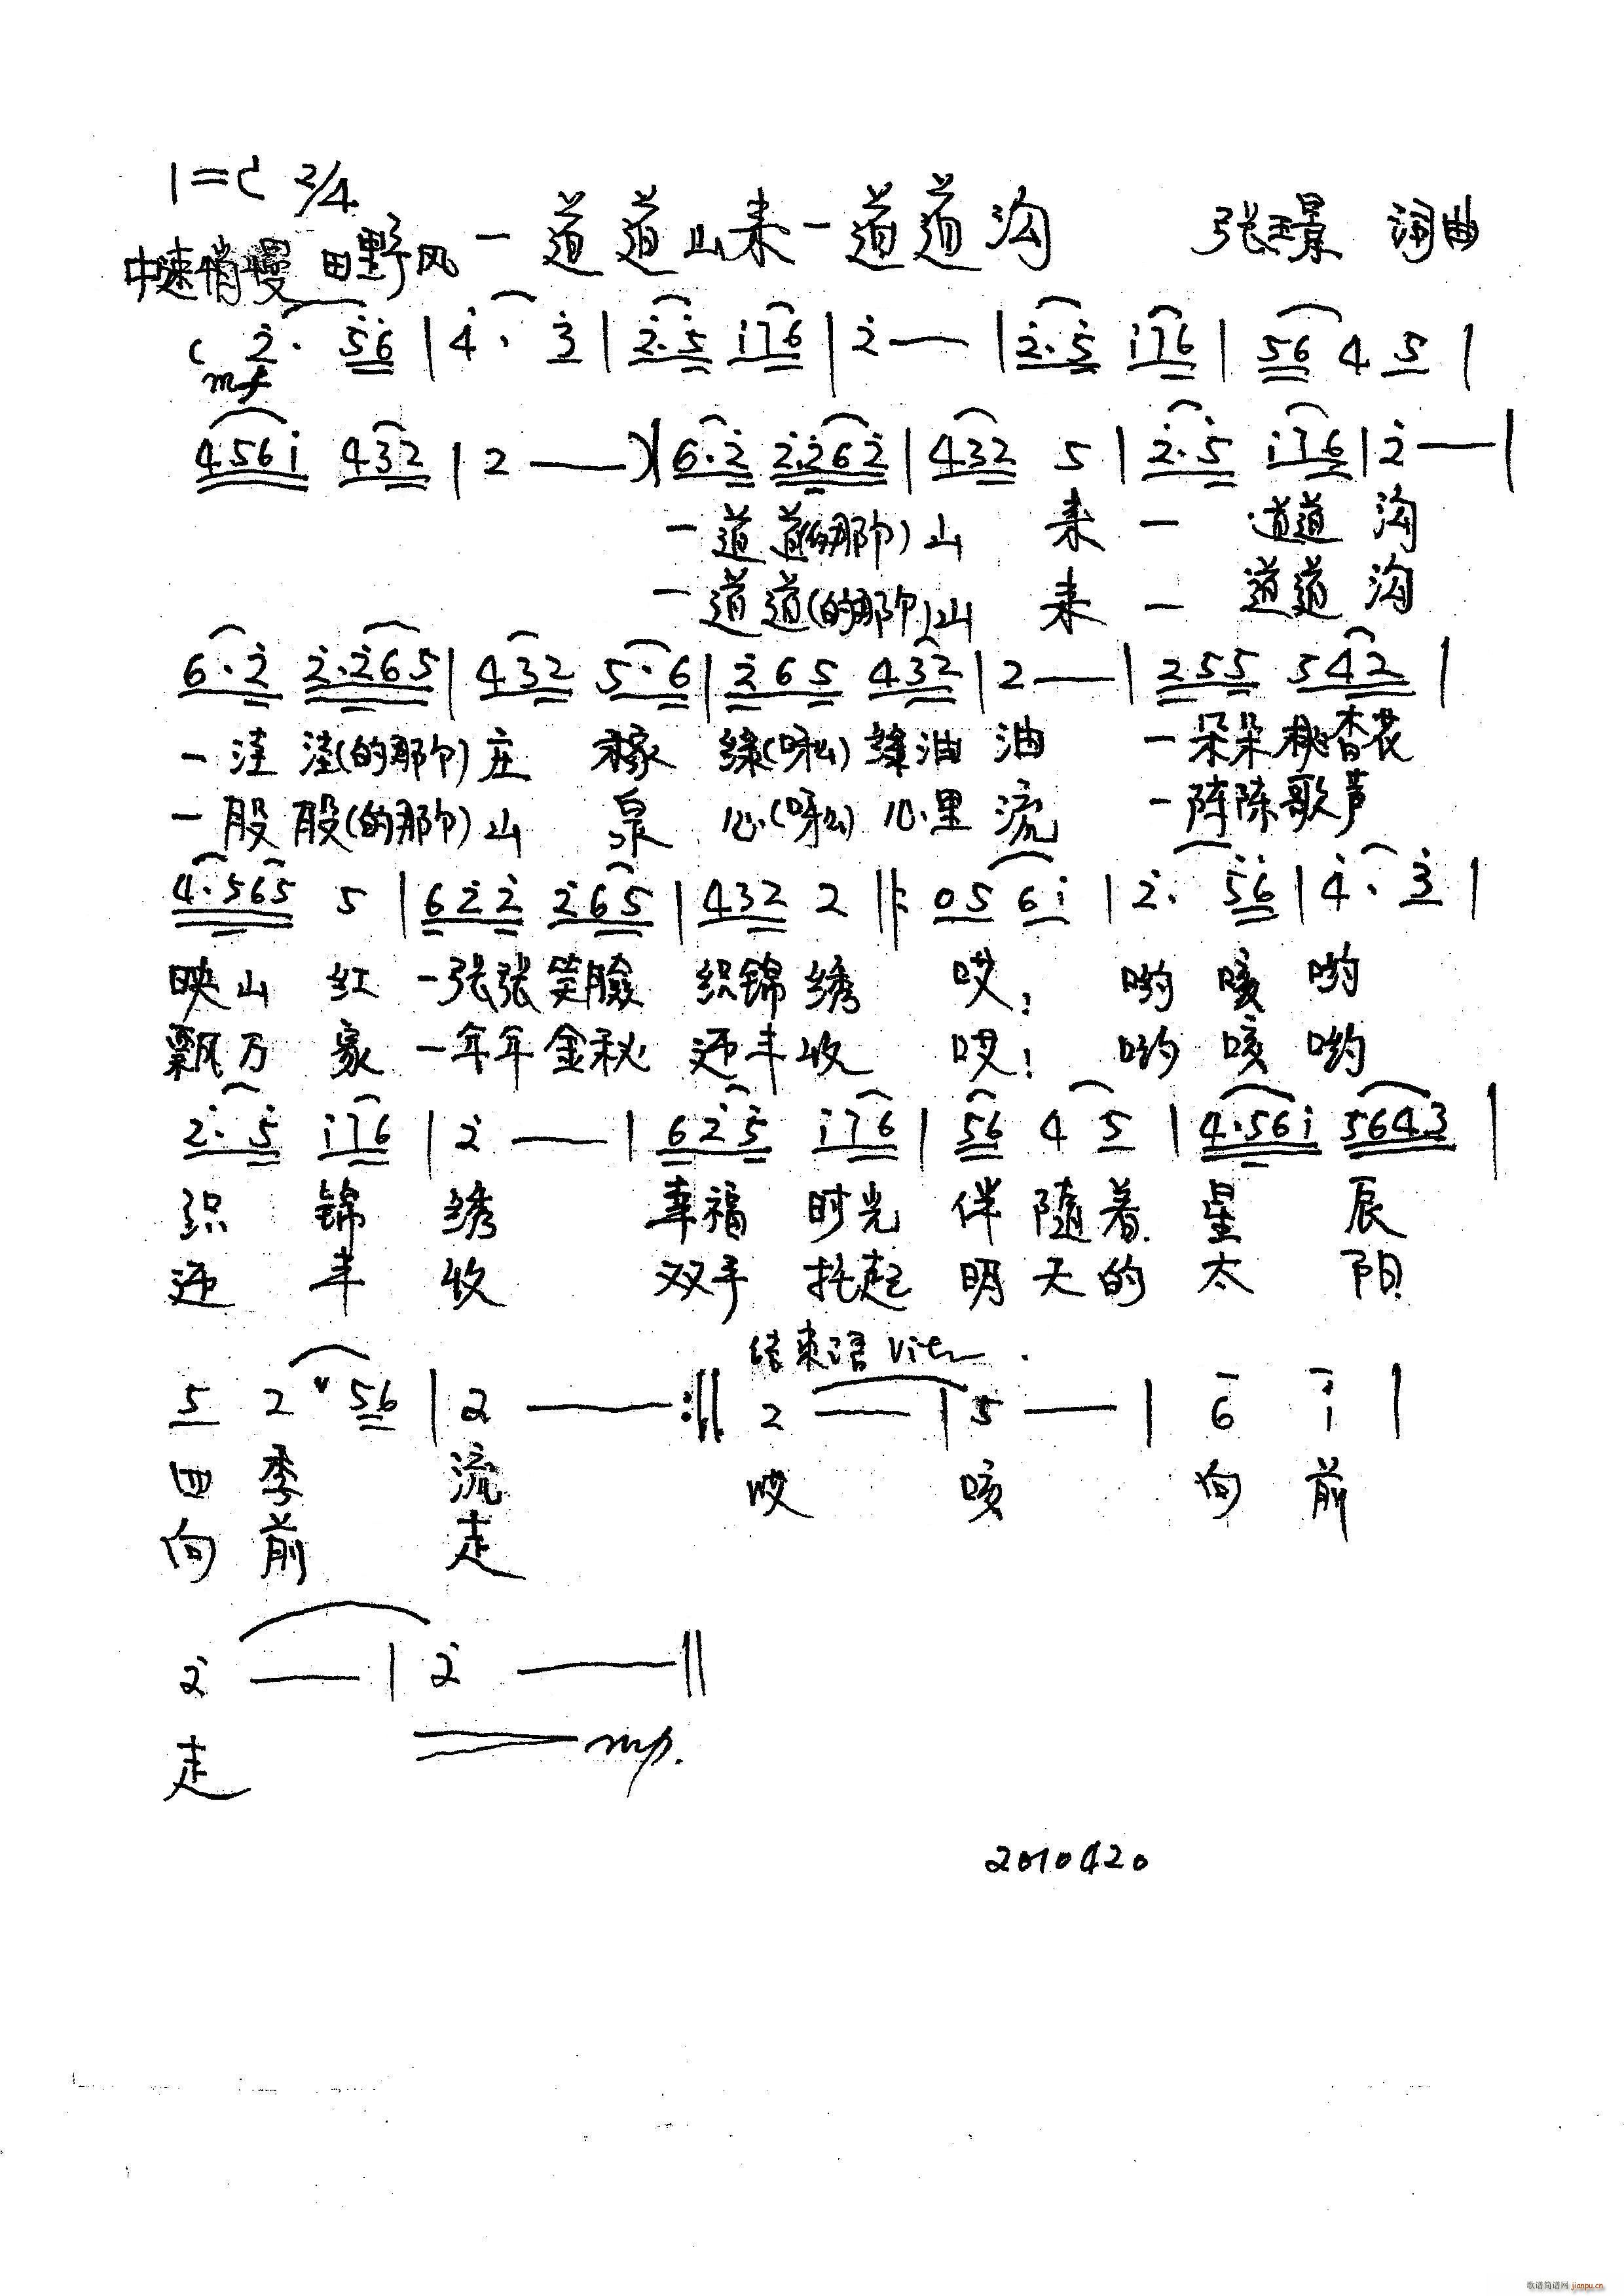 1=C 2/4
一道道山来一道道沟 张璟 词曲
中速稍慢 田野风
( 2̇· 5̇6̇ | 4̇· 3̇ | 2̇·5̇ i76 | 2̇ — | 2̇·5̇ i76 | 56 4 5 |
mf
456i 432 | 2 — ) | 6·2̇ 2̇·2̇62̇ | 432 5 | 2̇·5̇ i76 | 2̇ — |
一道道(的那个)山 来 一 道道 沟
一道道(的那个)山 来 一 道道 沟
6·2̇ 2̇·2̇65 | 432 5·6 | 2̇65 432 | 2 — | 255 542 |
一洼洼(的那个)庄 稼 绿(呀么)绿油 油 一朵朵桃杏花
一股股(的那个)山 泉 心(呀么)心里 流 一阵阵歌声
4·565 5 | 62̇2̇ 2̇65 | 432 2 ‖: 05 6i | 2̇· 5̇6̇ | 4̇· 3̇ |
映山 红 一张张笑脸 织锦 绣 哎! 哟 咳 哟
飘万 家 一年年金秋 迎丰 收 哎! 哟 咳 哟
2̇·5̇ i76 | 2̇ — | 62̇5̇ i76 | 56 4 5 | 4·56i 5643 |
织 锦 绣 幸福 时光 伴 随 着 星 辰
迎 丰 收 双手 托起 明 天 的 太 阳
结束语 Vit
5 2 ∨ 56 | 2 — :‖ 2 — | 5 — | 6 i |
四 季 流 哎 咳 向 前
向 前 走
2̇ — | 2̇ — ‖
走 mp.
2010420
歌谱简谱网 jianpu.cn